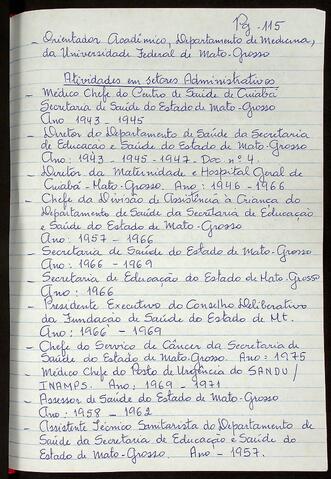 Pg - 115
- Orientador Acadêmico, Departamento de Medicina,
da Universidade Federal de Mato-Grosso
Atividades em setores Administrativos
- Médico Chefe do Centro de Saúde de Cuiabá
Secretaria de Saúde do Estado de Mato-Grosso
Ano 1943 - 1945
- Diretor do Departamento de Saúde da Secretaria
de Educação e Saúde do Estado de Mato-Grosso
Ano: 1943 - 1945 - 1947. Doc nº 4.
- Diretor da Maternidade e Hospital Geral de
Cuiabá - Mato-Grosso. Ano: 1946 - 1966
- Chefe da Divisão de Assistência à Criança do
Departamento de Saúde da Secretaria de Educação
e Saúde do Estado de Mato-Grosso
Ano: 1957 - 1966
- Secretaria de Saúde do Estado de Mato-Grosso
Ano: 1966 - 1969
- Secretaria de Educação do Estado de Mato-Grosso
Ano: 1966
- Presidente Executivo do Conselho Deliberativo
da Fundação de Saúde do Estado de Mt.
Ano: 1966 - 1969
- Chefe do Serviço de Câncer da Secretaria de
Saúde do Estado de Mato-Grosso. Ano: 1975
Médico Chefe do Posto de Urgência do SANDU/
INAMPS. Ano: 1969 - 1971
- Assessor de Saúde do Estado de Mato-Grosso
Ano: 1958 - 1962
- Assistente Técnico Sanitarista do Departamento de
Saúde da Secretaria de Educação e Saúde do
Estado de Mato-Grosso. Ano - 1957.